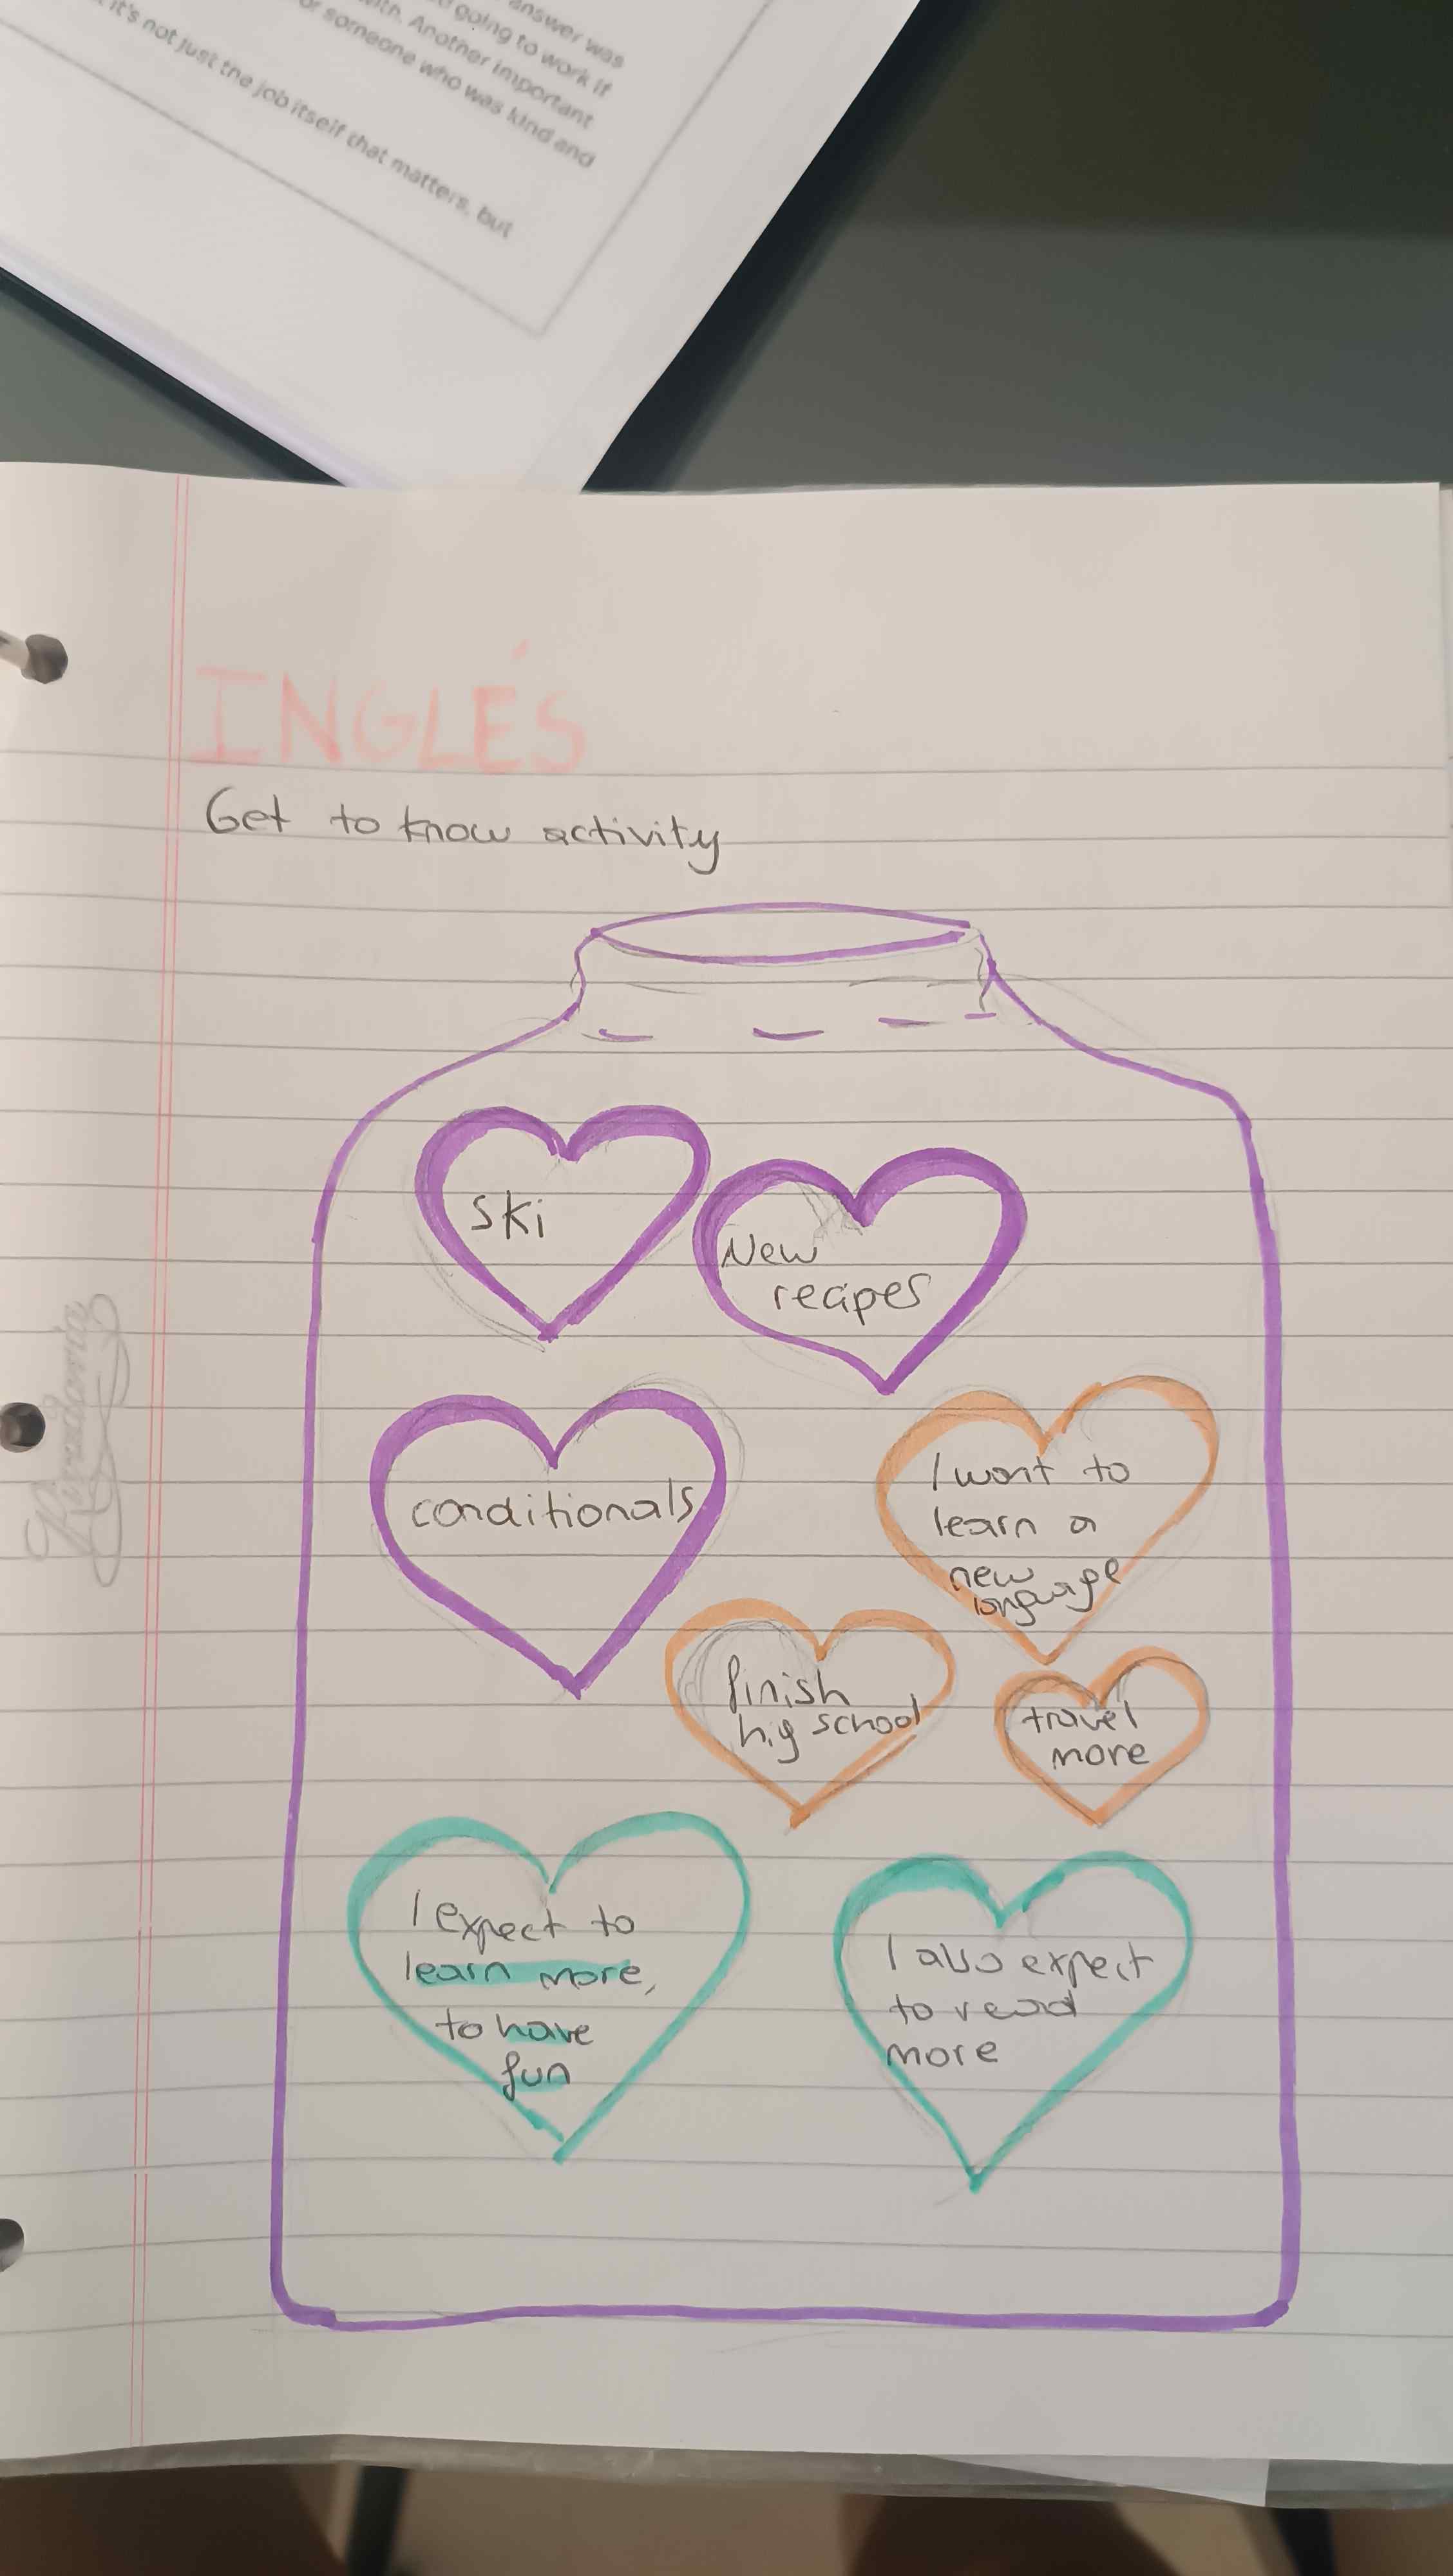 answer was
going to work if
with. Another important
or someone who was kind and
it's not just the job itself that matters, but
INGLÉS
Get to know activity
ski
New
recipes
conditionals
I want to
learn a
new
language
finish
hig school
travel
more
I expect to
learn more,
to have
fun
I also expect
to read
more